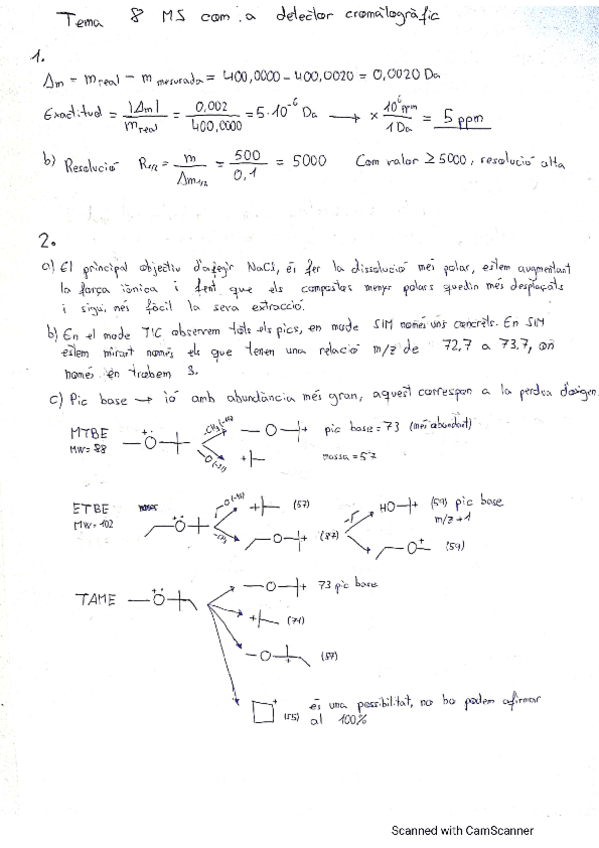 Tema 8 MS com a detector cromatogràfic
1.
Δm = m real - m mesurada = 400,0000 - 400,0020 = 0,0020 Da
Exactitud = |Δm| / m real = 0,002 / 400,0000 = 5·10⁻⁶ Da → × 10⁶ ppm / 1 Da = 5 ppm
b) Resolució R1/2 = m / Δm1/2 = 500 / 0,1 = 5000 Com valor ≥ 5000, resolució alta
2.
a) El principal objectiu d'afegir NaCl, és fer la dissolució més polar, estem augmentant
la força iònica i fent que els compostos menys polars quedin més desplaçats
i sigui més fàcil la seva extracció.
b) En el mode TIC observem tots els pics, en mode SIM només uns concrets. En SIM
estem mirant només els que tenen una relació m/z de 72,7 a 73,7, on
només en trobem 3.
c) Pic base → ió amb abundància més gran, aquest correspon a la perdua d'oxigen
MTBE
MW= 88
-O-
-CH3
-O (-31)
-O-+ pic base = 73 (més abundant)
+ massa = 57
ETBE
MW= 102
-O-
-CH3
+ (57)
-O-+ (87)
HO-+ (59) pic base
m/z +1
-O+ (59)
TAME -O-
-O-+ 73 pic base
+ (71)
-O- (87)
+ (55) és una possibilitat, no ho podem afirmar
al 100%
Scanned with CamScanner